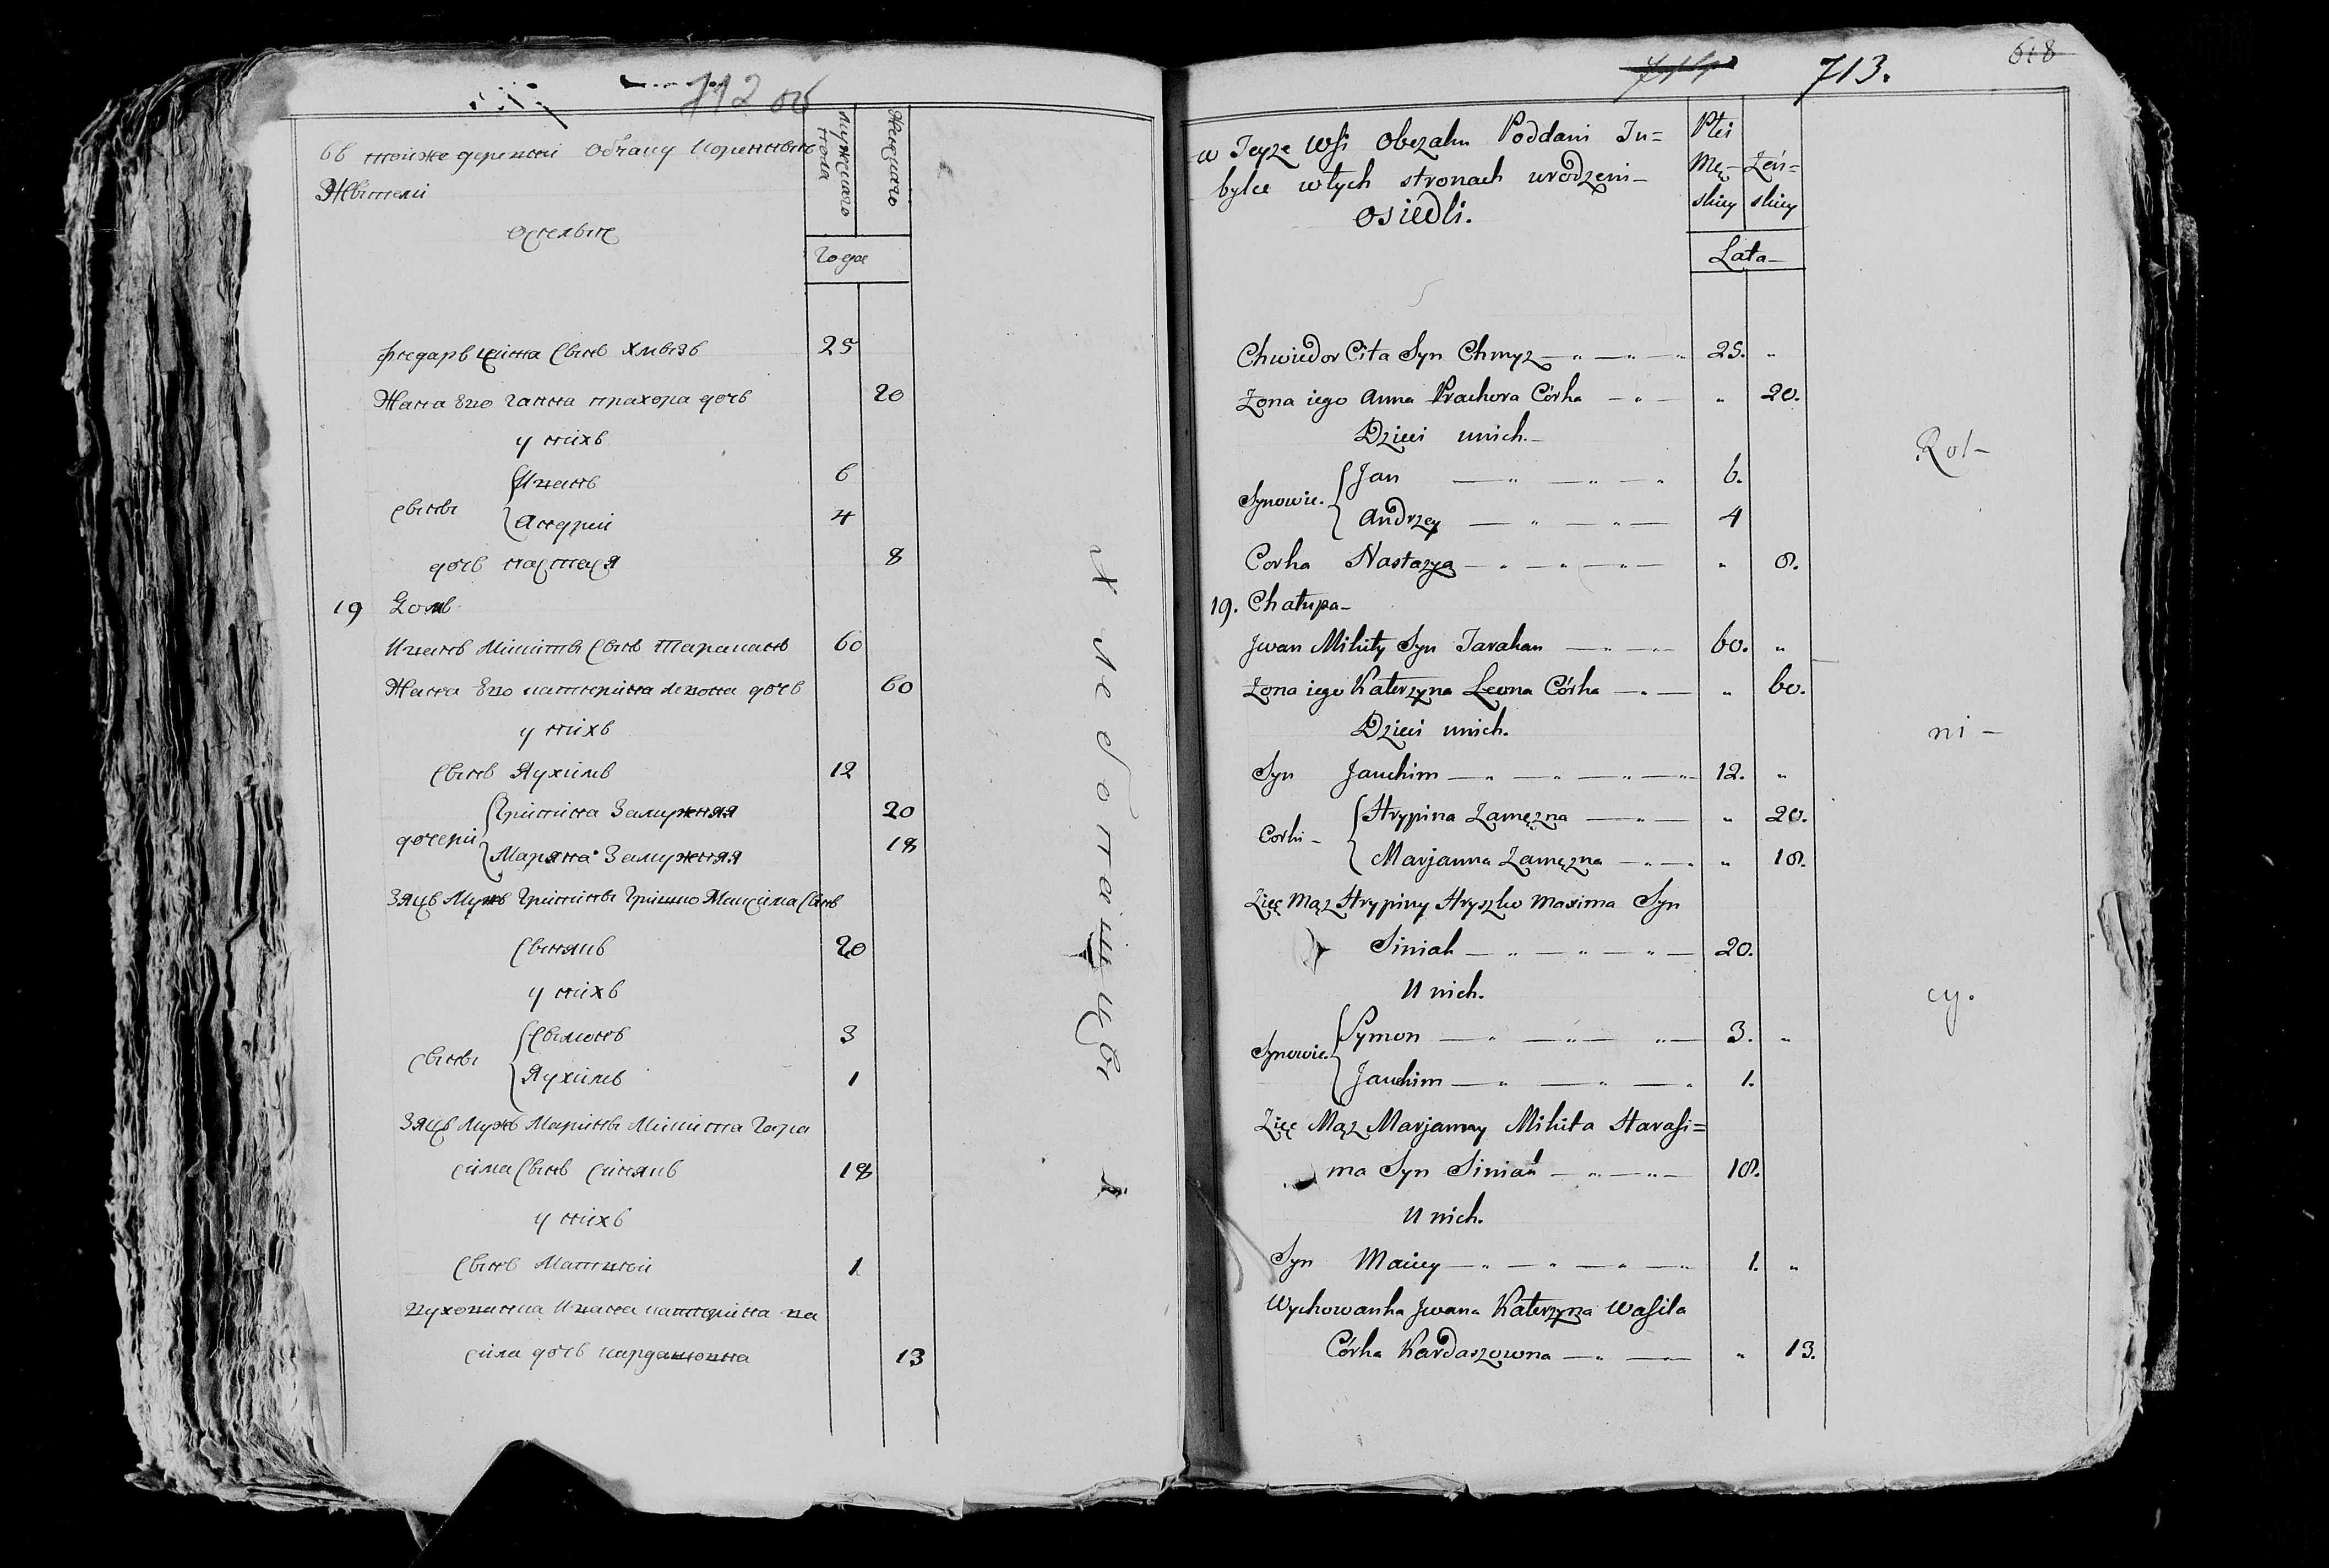 712 об
въ тойже деревни Обчаку коренные
Жители
оселые
мужескаго пола
Женскаго
Года
Федаръ цита сынъ Хмызъ 25
Жана Его ганна прахора дочь 20
у нихъ
сыны
Иванъ 6
Андрей 4
дочь настася 8
19 Домъ
Иванъ Микиты сынъ Тараканъ 60
Жана Его катерина левона дочь 60
у нихъ
сынъ Яухимъ 12
дочери
Грипина Замужняя 20
Маряна Замужняя 18
Зяць Мужъ Грипины Гришко Максима сынъ
сынякъ 20
у нихъ
сыны
сымонъ 3
Яухимъ 1
Зяць Мужъ Марины Микита Гара
сима сынъ синякъ 18
у нихъ
сынъ Матвей 1
вухованка Ивана катерина ва
сила дочь кардашовна 13
713.
618
w Teyze Wsi Obczaku Poddani In=
bylce w tych stronach urodzeni
osiedli.
Płci
Mę- Żeń=
skiey skiey
Lata
Chwiedor Cita Syn Chmyz — „ — „ 25. „
Żona iego Anna Prachora Córka — „ — „ 20.
Dzieci u nich.
Synowie.
Jan — „ — „ — „ 6.
Andrzey — „ — „ — 4
Corka Nastazya — „ — „ — „ — „ 8.
19. Chałupa
Jwan Mikity Syn Tarakan — „ — „ 60. „
Żona iego Katerzyna Leona Córka — „ — „ 60.
Dzieci u nich.
Syn Jauchim — „ — „ — „ — 12. „
Corki
Hrypina Zamęzna — „ — „ 20.
Marjanna Zamęzna — „ — „ „ 18.
Zięć Mąz Hrypiny Hryszko Maxima Syn
Siniak — „ — „ — „ — 20.
U nich.
Synowie.
Symon — „ — „ — „ — 3. „
Jauchim — „ — „ — „ 1.
Zięc Mąz Marjanny Mikita Harasi=
ma Syn Siniak — „ — „ — 18.
U nich.
Syn Maiey — „ — „ — „ — „ 1. „
Wychowanka Jwana Katerzyna Wasila
Córka Kardaszowna — „ — „ 13.
Rol-
ni-
cy.